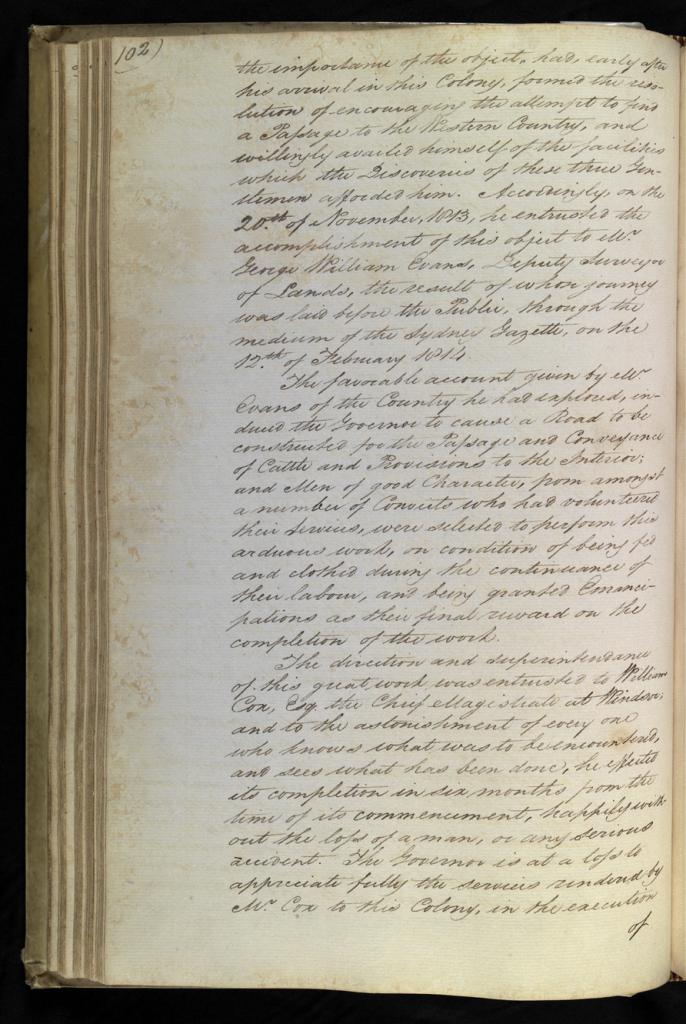 102)
the importance of the object, had, early after
his arrival in this Colony, formed the reso-
lution of encouraging the attempt to find
a Paſsage to the Western Country, and
willingly availed himself of the facilities
which the Discoveries of these three Gen-
tlemen afforded him. Accordingly, on the
20.th of November, 1813, he entrusted the
accomplishment of this object to Mr.
George William Evans, Deputy Surveyor
of Lands, the result of whose journey
was laid before the Public, through the
medium of the Sydney Gazette, on the
12.th of February 1814.
The favorable account given by Mr.
Evans of the Country he had explored, in-
duced the Governor to cause a Road to be
constructed for the Paſsage and Conveyance
of Cattle and Provisions to the Interior;
and Men of good Character, from amongst
a number of Convicts who had volunteered
their services, were selected to perform this
arduous work, on condition of being fed
and clothed during the continuance of
their labour, and being granted Emanci-
pations as their final reward on the
completion of the work.
The direction and superintendance
of this great work was entrusted to William
Cox, Esq. the Chief Magistrate at Windsor;
and to the astonishment of every one
who knows what was to be encountered,
and sees what has been done, he effected
its completion in six months from the
time of its commencement, happily with-
out the loſs of a man, or any serious
accident. The Governor is at a loſs to
appreciate fully the services rendered by
Mr. Cox to this Colony, in the execution
of